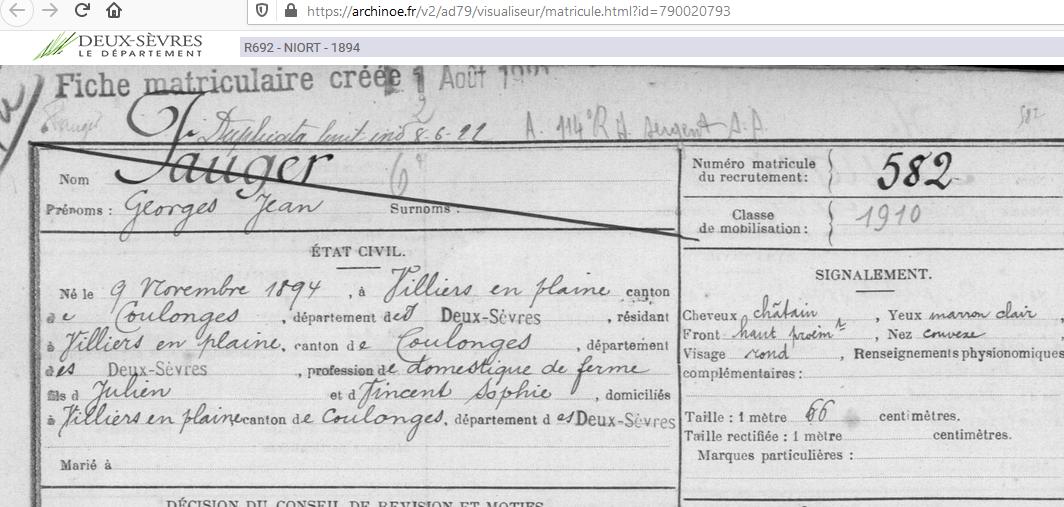 https://archinoe.fr/v2/ad79/visualiseur/matricule.html?id=790020793
DEUX-SÈVRES
LE DÉPARTEMENT
R692 - NIORT - 1894
Fiche matriculaire créée 1 Août
582
Duplicata 8-6-22 A. 114e R A. sergent
Nom
Jauger
Numéro matricule
du recrutement : 582
Prénoms : Georges Jean Surnoms :
Classe
de mobilisation : 1910
ÉTAT CIVIL.
SIGNALEMENT.
Né le 9 Novembre 1894, à Villiers en plaine canton
de Coulonges, département des Deux-Sèvres, résidant
à Villiers en plaine, canton de Coulonges, département
des Deux-Sèvres, profession de domestique de ferme
fils d Julien et d Vincent Sophie, domiciliés
à Villiers en plaine canton de Coulonges, département des Deux-Sèvres
Marié à
Cheveux châtain, Yeux marron clair
Front haut proémt, Nez convexe
Visage rond, Renseignements physionomiques
complémentaires :
Taille : 1 mètre 66 centimètres.
Taille rectifiée : 1 mètre centimètres.
Marques particulières :
DÉCISION DU CONSEIL DE REVISION ET MOTIFS.